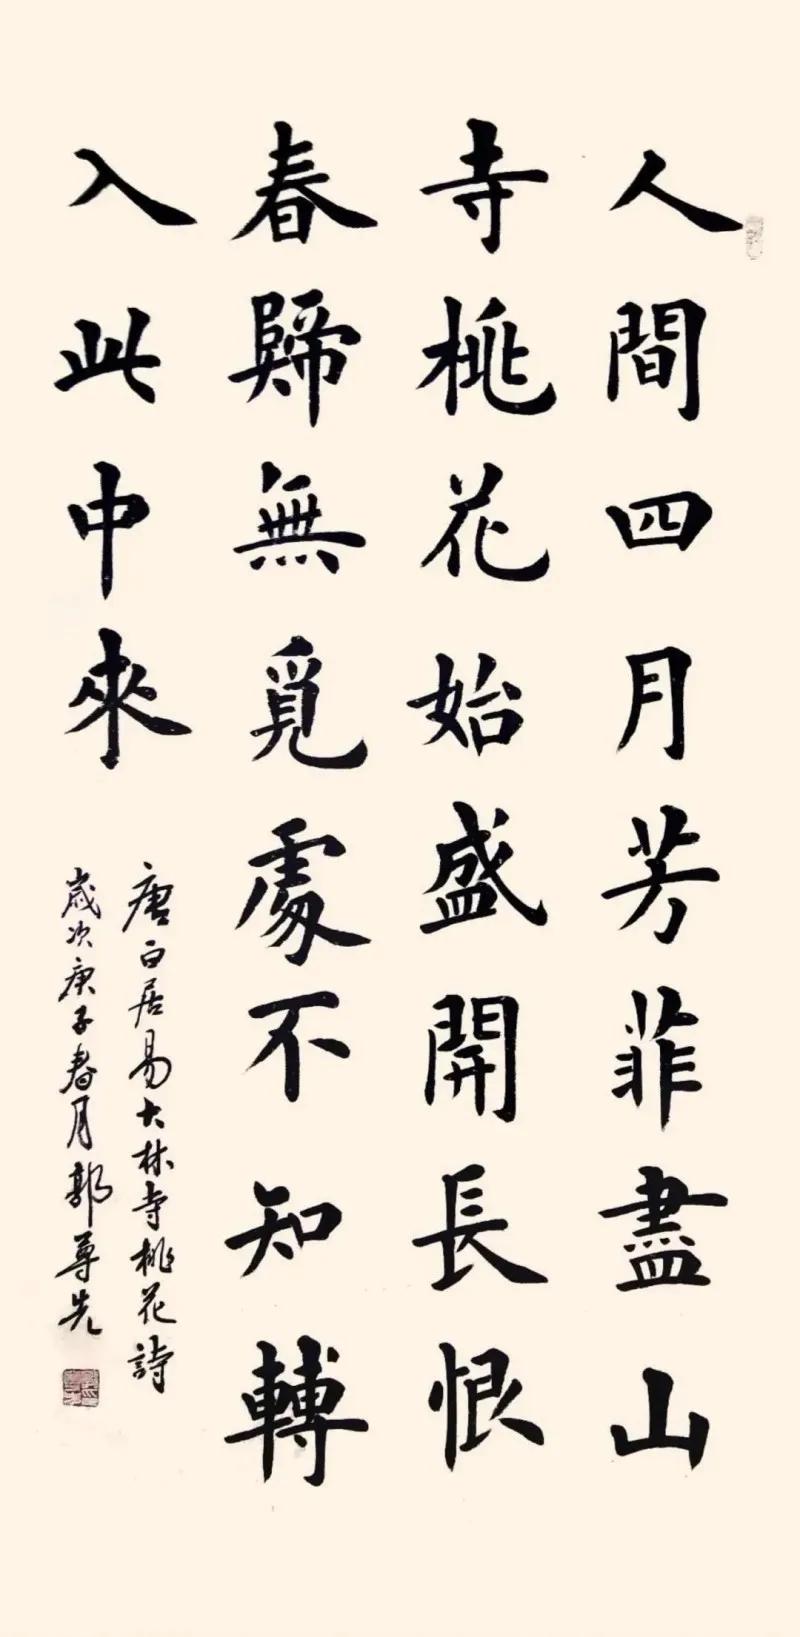 人間四月芳菲盡山
寺桃花始盛開長恨
春歸無覓處不知轉
入此中來
唐白居易大林寺桃花詩
歲次庚子春月郭尊先